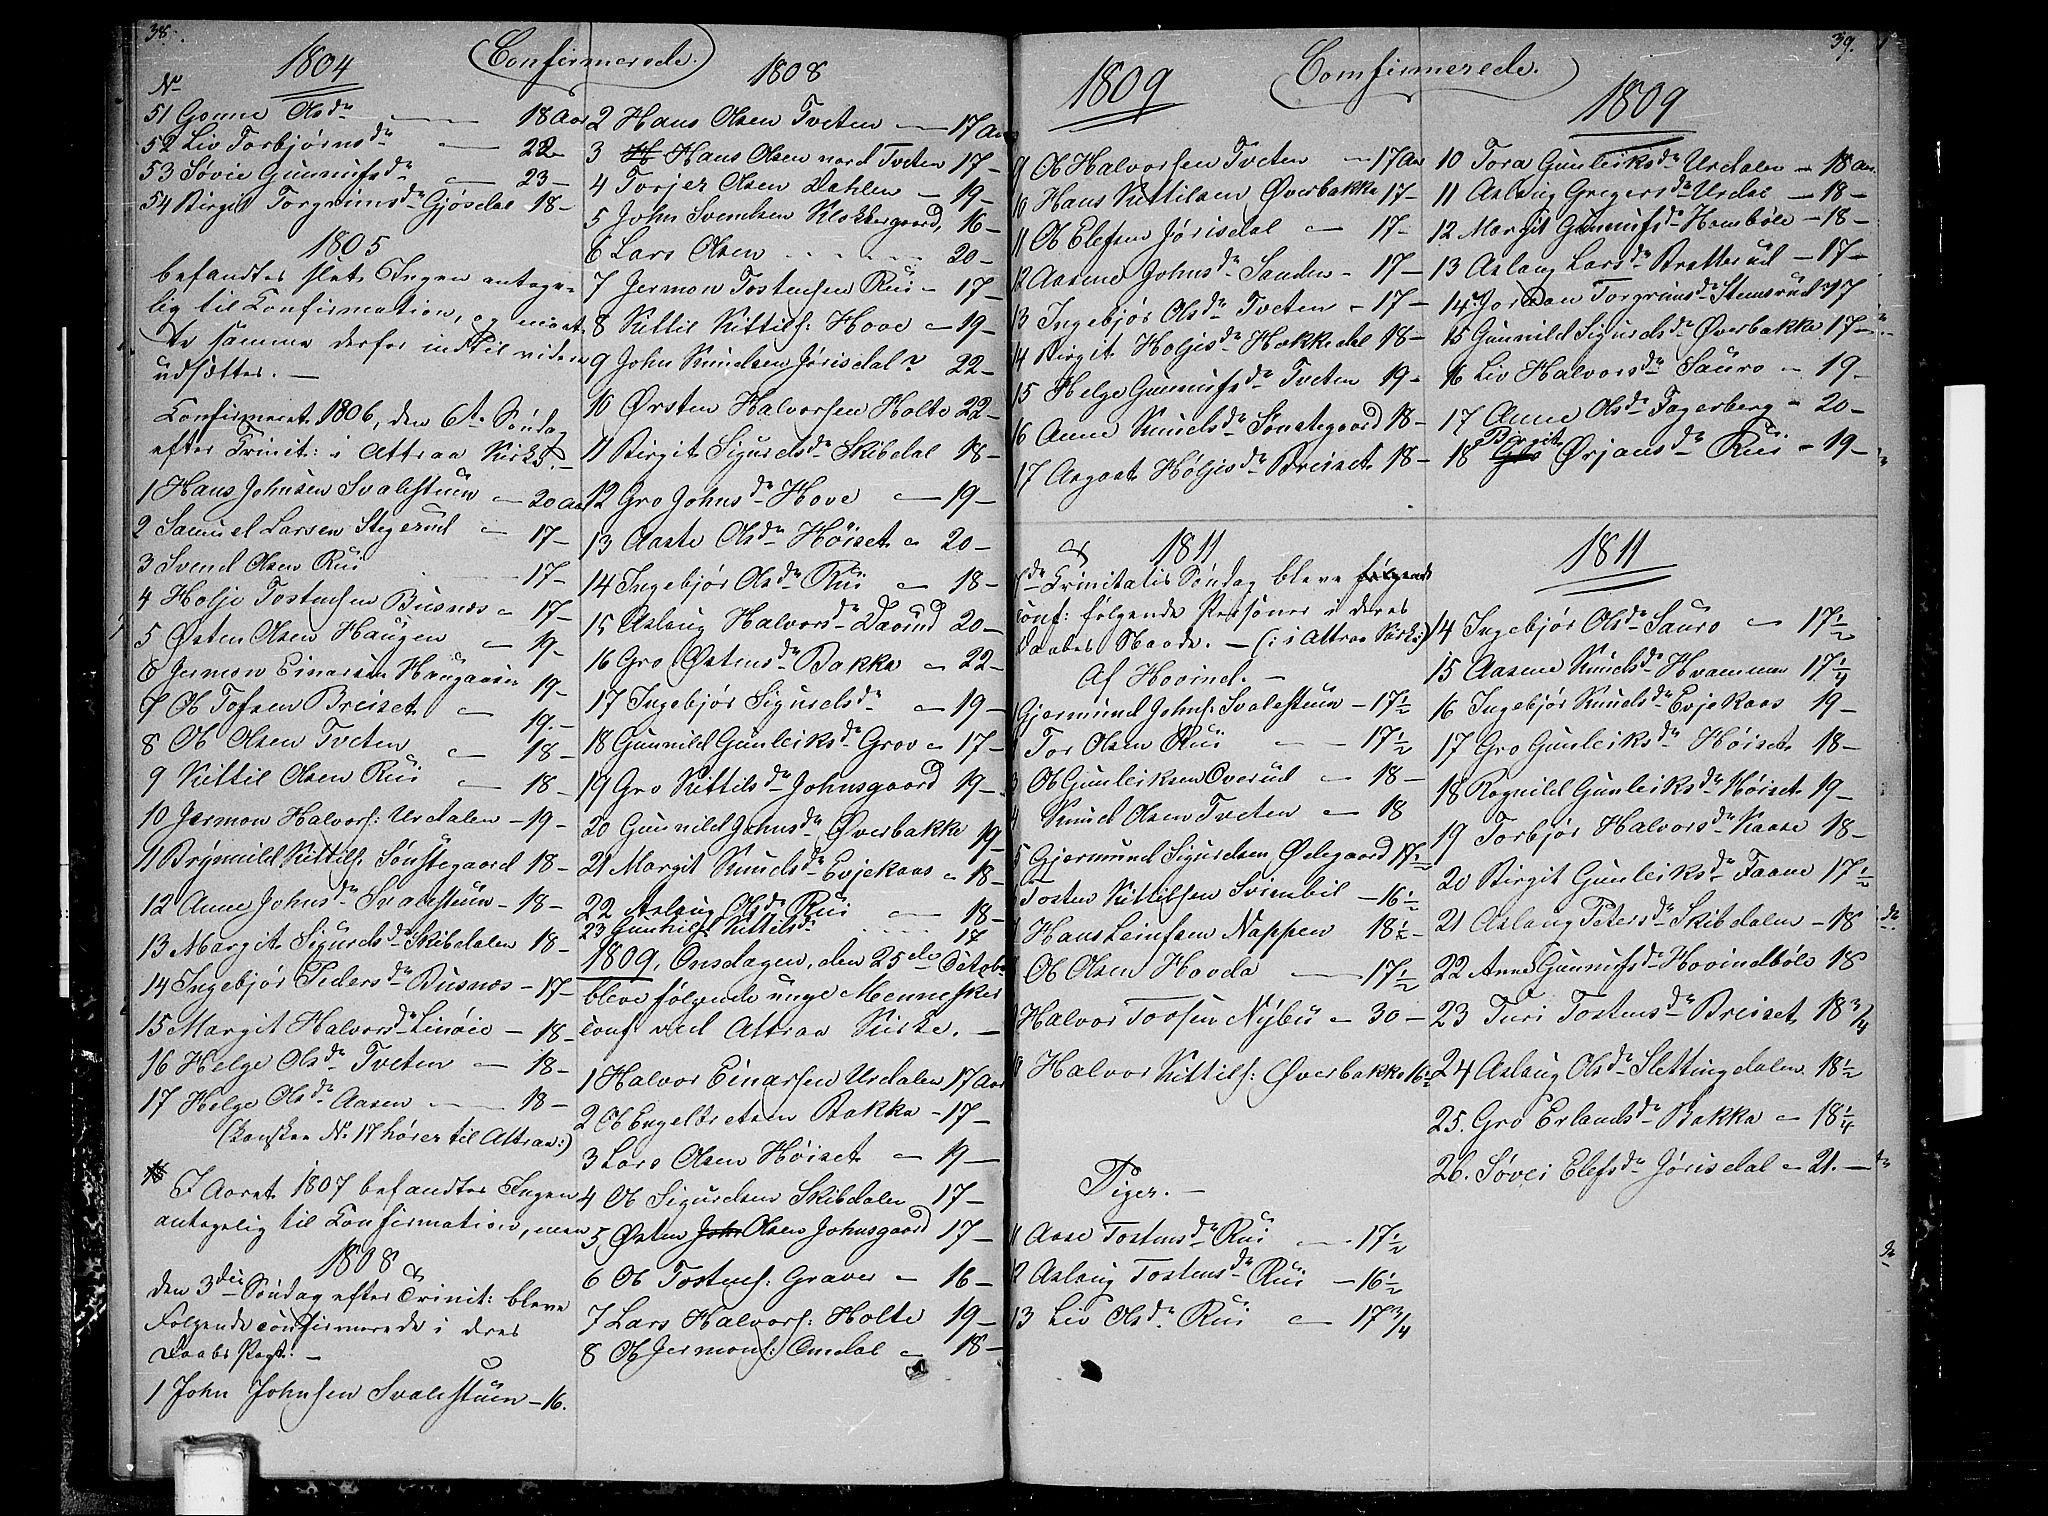 38.
Confirmerede.
1804
No
51 Gonne Olsdr — 18 Aar
52 Liv Torbjørnsdr — 22
53 Søvie Gunnufsdr — 23 —
54 Birgit Torgrimsdr Gjøsdal 18 —
1805
befandtes slet Ingen antage-
lig til Confirmation, og maat-
te samme derfor indtil videre
udsættes. —
Confirmeret 1806, den 6te Søndag
efter Trinit: i Attraa Kirke. —
1 Hans Johnsen Svalestuen — 20 Aar
2 Samuel Larsen Stegerud — 17 —
3 Svend Olsen Rui — 17 —
4 Holje Tostensen Busnæs — 17 —
5 Østen Olsen Haugen — 19 —
6 Jermon Einarsen Haugaasen 19 —
7 Ol Tofsen Breiset — 19. —
8 Ol Olsen Tveten — 18 —
9 Kittil Olsen Rui — 18 —
10 Jermon Halvors: Urdalen — 19 —
11 Brynnild Kittils: Sønstegaard 18 —
12 Anne Johnsdr Svalestuen — 18 —
13 Margit Sigurdsdr Skibdalen 18 —
14 Ingebjør Pedersdr Busnæs — 17 —
15 Margit Halvorsdr Linøie — 18 —
16 Helge Olsdr Tveten — 18 —
17 Helge Olsdr Aasen — 18 —
(kanskee No 17 hører til Attraa:)
I Aaret 1807 befandtes Ingen
antagelig til Confirmation, men
1808
den 3die Søndag efter Trinit: bleve
Følgende confirmerede i deres
Daabs Pagt: —
1 John Johnsen Svalestuen — 16.
1808
2 Hans Olsen Tveten — 17 Aar
3 Hans Olsen nord Tveten 17 —
4 Torjer Olsen Dahlen — 19 —
5 John Svendsen Klokkergaard, 16 —
6 Lars Olsen . . . . . . 20 —
7 Jermon Tostensen Rui — 17 —
8 Kittil Kittils: Hove — 19 —
9 John Knudsen Jørisdal? 22 —
10 Ørsten Halvorsen Holte 22 —
11 Birgit Sigurdsdr Skibdal 18 —
12 Gro Johnsdr Hove — 19 —
13 Aaste Olsdr Høiset — 20 —
14 Ingebjør Olsdr Rui — 18 —
15 Aslaug Halvorsdr Daarud 20 —
16 Gro Østensdr Bakka — 22 —
17 Ingebjør Sigurdsdr — 19 —
18 Gunnild Gunleiksdr Grov — 17 —
19 Gro Kittilsdr Johnsgaard 19 —
20 Gunnild Johnsdr Øverbakka 19 —
21 Margit Knudsdr Evjekaas — 18 —
22 Aslaug Olsdr Rui — 18 —
23 Gunhild Kittilsdr . . . . 17
1809, Onsdagen, den 25de October
bleve følgende unge Mennesker
conf ved Attraa Kirke. —
1 Halvor Einarsen Urdalen 17 Aar
2 Ol Engelbretsen Bakka — 17 —
3 Lars Olsen Høiset — 19 —
4 Ol Sigurdsen Skibdalen 17 —
5 Østen John Olsen Johnsgaard 17 —
6 Ol Tostens: Graver — 16 —
7 Lars Halvors: Holte 19 —
8 Ol Jermons: Omdal — 18 —
39.
Comfirmerede.
1809
9 Ol Halvorsen Tveten — 17 Aar
10 Hans Kittilsen Øverbakka 17 —
11 Ol Elefsen Jørisdal — 17 —
12 Aasene Johnsdr Sanden — 17 —
13 Ingebjør Olsdr Tveten — 17 —
14 Birgit Holjesdr Hakkedal 18 —
15 Helge Gunnufsdr Tveten 19 —
16 Anne Knudsdr Sønstegaard 18 —
17 Aagaat Høljisdr Breiset 18 —
1811
dr Trinitatis Søndag bleve følgende
conf: følgende Personer i deres
Daabes Naade. — (: i Attraa Kirke:)
Af Hovind. —
Gjermund Johns: Svalestuen — 17 1/2
Tor Olsen Rui — 17 1/2
3 Ol Gunleiksen Overud — 18 —
4 Knud Olsen Tveten — 18
5 Gjermund Sigurdsen Ødegaard 17 1/2
Tosten Kittilsen Svimbil — 16 1/2
Hans Leinfsen Nappen 18 1/2 —
Ol Olsen Haada — 17 1/2
Halvor Tovsen Nybu — 30 —
Halvor Kittils: Øverbakke 16 1/2
Piger. —
11 Aase Tostensdr Rui — 17 1/2
12 Aslaug Tostensdr Rui — 16 1/2
13 Liv Olsdr Rui — 17 3/4
1809
10 Tora Gunleiksdr Urdalen — 18 Aar
11 Aslaug Gregersdr Urdal — 18 —
12 Margit Gunnufsdr Hombøle — 18 —
13 Aslaug Larsdr Bratterud — 17 —
14 Joraan Torgrimsdr Stensrud 17
15 Gunnild Sigurdsdr Øverbakka 17 —
16 Liv Halvorsdr Sauro — 19 —
17 Anne Olsdr Fagerberg — 20 —
18 Birgit Ørjansdr Rui — 19 —
1811
14 Ingebjør Olsdr Sauro — 17 1/2
15 Aasene Knudsdr Hvammen 17 1/4
16 Ingebjør Knudsdr Evjekaas 19 —
17 Gro Gunleiksdr Høiset 18 —
18 Ragnild Gunleiksdr Høiset 19 —
19 Torbjør Halvorsdr Kaase 18 —
20 Birgit Gunleiksdr Faane 17 1/2
21 Aslaug Petersdr Skibdalen — 18
22 Anne Gunnufsdr Hovindbøle 18
23 Turi Tostensdr Breiset 18 3/4
24 Aslaug Olsdr Slettingdalen 18 1/2
25. Gro Erlandsdr Bakka — 18 1/4
26. Søvei Elefsdr Jørisdal — 21. —